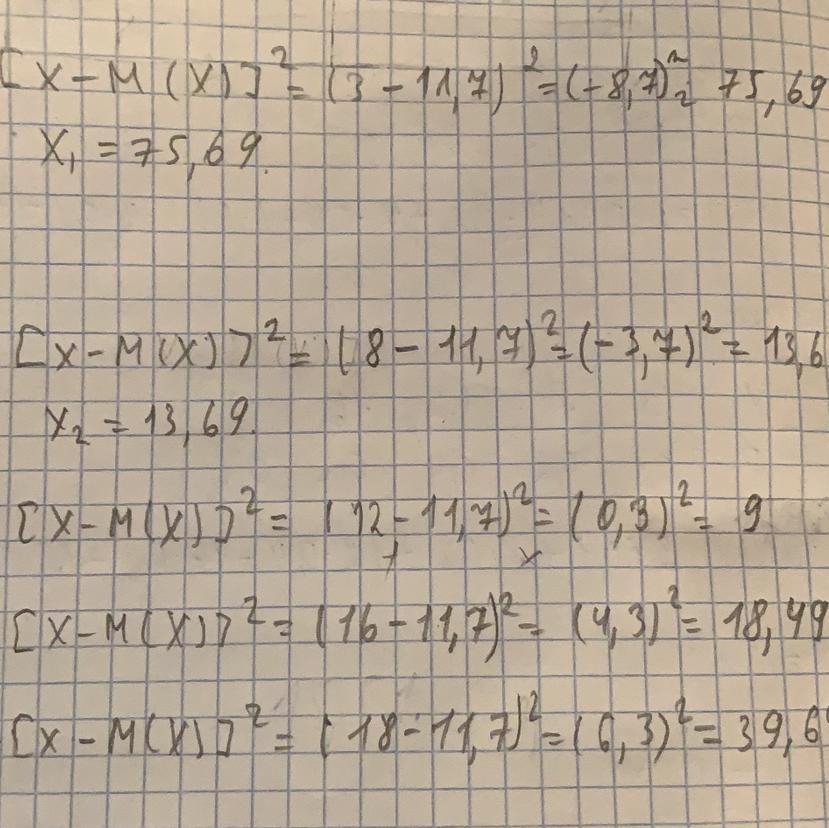 [X-M(X)]²=(3-11,7)²=(-8,7)²= 75,69
X₁=75,69.
[X-M(X)]²=(8-11,7)²=(-3,7)²=13,6
X₂=13,69.
[X-M(X)]²=(12-11,7)²=(0,3)²=9
[X-M(X)]²=(16-11,7)²=(4,3)²=18,49
[X-M(X)]²=(18-11,7)²=(6,3)²=39,6